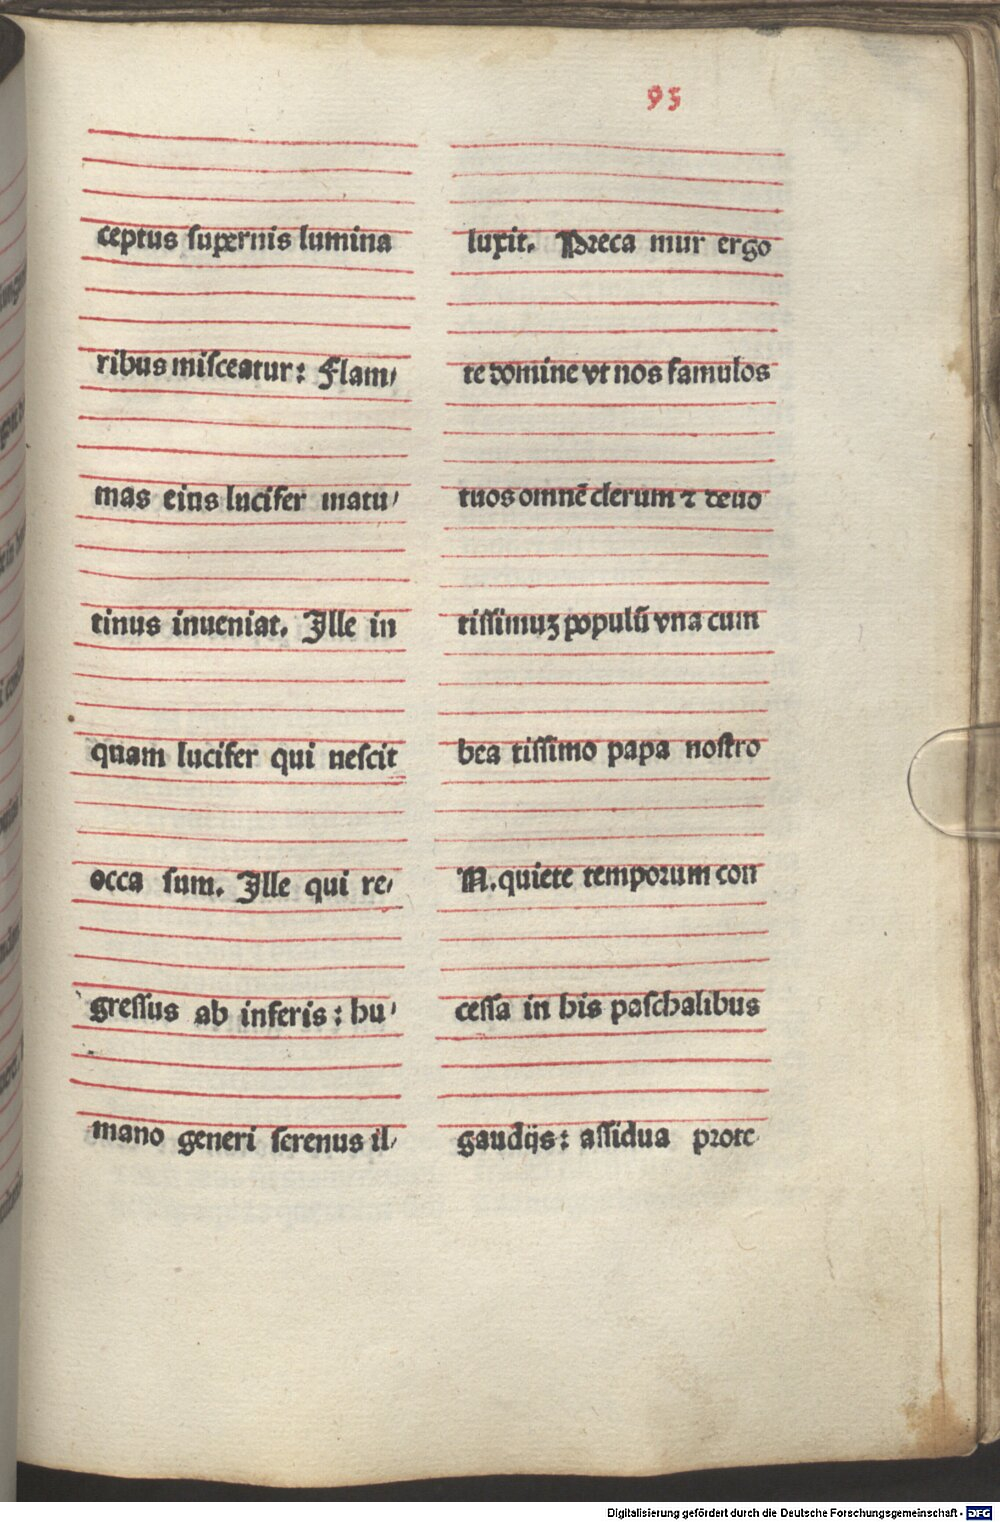 95
ceptus ſupernis lumina
ribus miſceatur: Flam⸗
mas eius lucifer matu⸗
tinus inueniat. Ille in
quam lucifer qui neſcit
occa ſum. Ille qui re⸗
greſſus ab inferis: hu⸗
mano generi ſerenus il⸗
luxit. Preca mur ergo
te domine vt nos famulos
tuos omnē clerum ⁊ deuo
tiſſimuꝫ populū vna cum
bea tiſſimo papa noſtro
N. quiete temporum con
ceſſa in his paſchalibus
gaudijs: aſſidua prote⸗
Digitalisierung gefördert durch die Deutsche Forschungsgemeinschaft - DFG